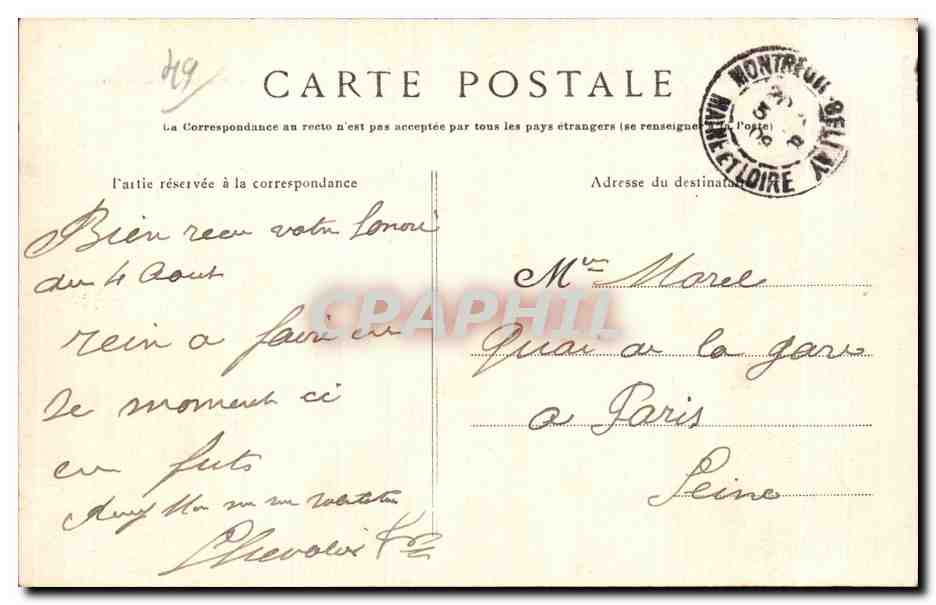 49
CARTE POSTALE
La Correspondance au recto n'est pas acceptée par tous les pays étrangers (se renseigner à la Poste)
MONTREUIL-BELLAY
MAINE ET LOIRE
5-8
09
Partie réservée à la correspondance
Adresse du destinataire
Bien recu votre honoré
du 4 Aout
rein a faire en
se moment ci
en futs
Chevalier
Mr Morel
Quai de la gare
a Paris
Seine
CPAPHIL